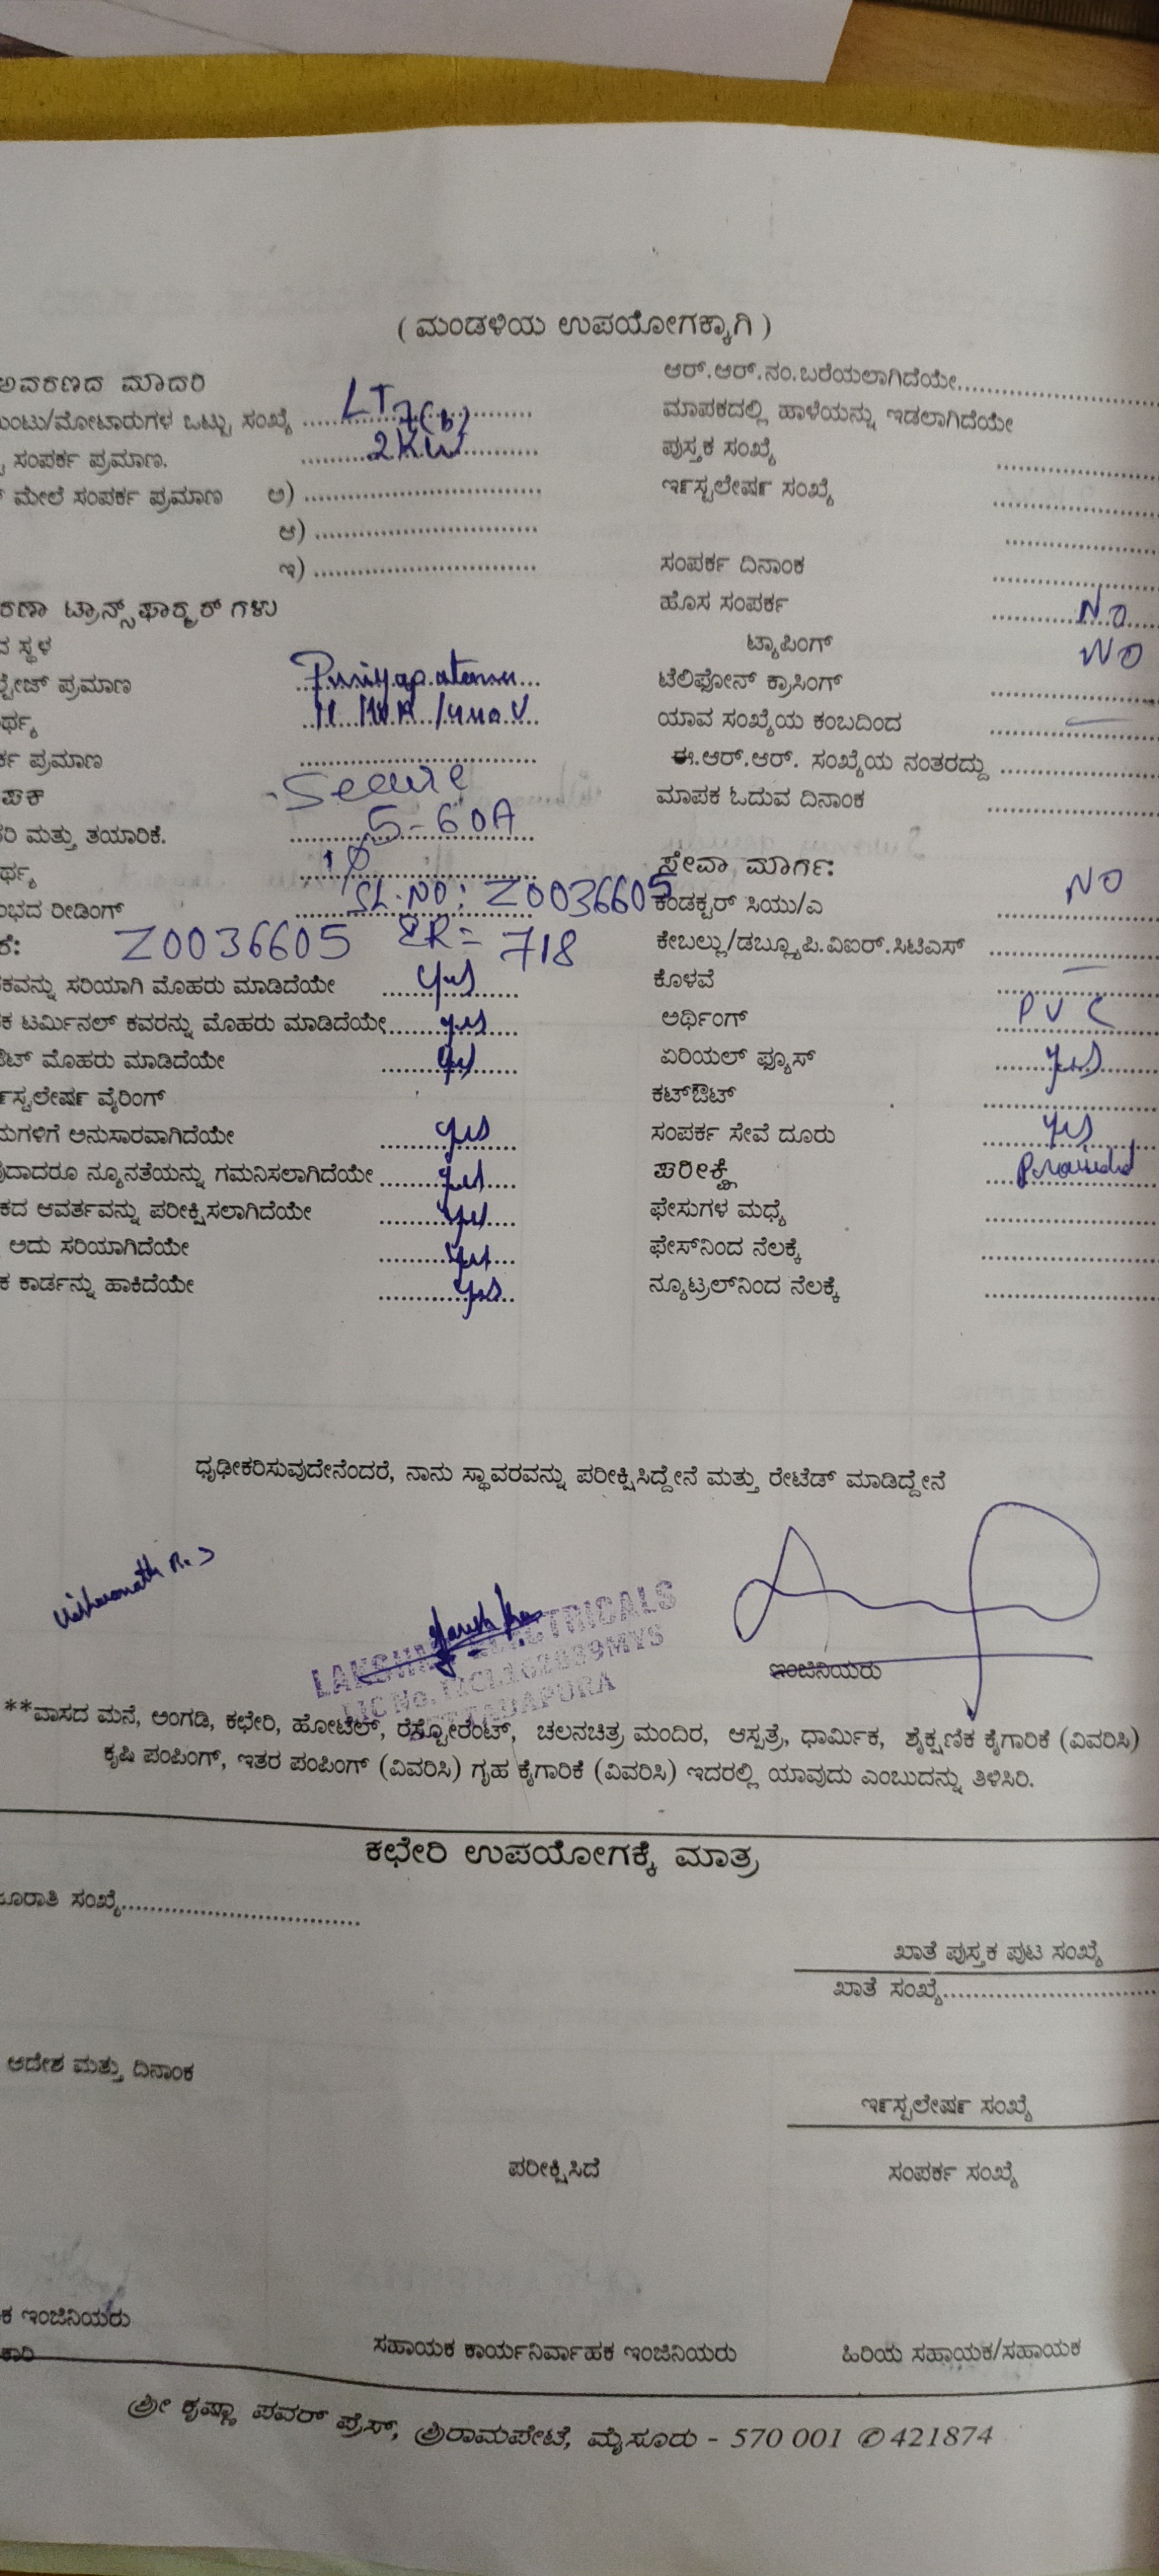 ( ಮಂಡಳಿಯ ಉಪಯೋಗಕ್ಕಾಗಿ )
ಅವರಣದ ಮಾದರಿ
ಯಂಟು/ಮೋಟಾರುಗಳ ಒಟ್ಟು ಸಂಖ್ಯೆ ........ LT 7(b)
ಸಂಪರ್ಕ ಪ್ರಮಾಣ. ........ 2KW
ಮೇಲೆ ಸಂಪರ್ಕ ಪ್ರಮಾಣ ಅ) ........
ಆ) ........
ಇ) ........
ರಣಾ ಟ್ರಾನ್ಸ್‌ಫಾರ್ಮರ್ ಗಳು
ವ ಸ್ಥಳ
ಲ್ಟೇಜ್ ಪ್ರಮಾಣ
ರ್ಥ್ಯ
ರ್ಕ ಪ್ರಮಾಣ ........
ಪಕ Secure
ರಿ ಮತ್ತು ತಯಾರಿಕೆ. ........ 5-60A
ರ್ಥ್ಯ ........ 1Ø
ಂಭದ ರೀಡಿಂಗ್ ........ SL.NO: Z0036605
ಕೆ: Z0036605 ER= 718
ಕವನ್ನು ಸರಿಯಾಗಿ ಮೊಹರು ಮಾಡಿದೆಯೇ ........ yes
ಕ ಟರ್ಮಿನಲ್ ಕವರನ್ನು ಮೊಹರು ಮಾಡಿದೆಯೇ ........ yes
ಔಟ್ ಮೊಹರು ಮಾಡಿದೆಯೇ ........ yes
ರ್ಸ್ಟಲೇರ್ಷ ವೈರಿಂಗ್
ಮಗಳಿಗೆ ಅನುಸಾರವಾಗಿದೆಯೇ ........ yes
ವುದಾದರೂ ನ್ಯೂನತೆಯನ್ನು ಗಮನಿಸಲಾಗಿದೆಯೇ ........ yes
ಕದ ಆವರ್ತವನ್ನು ಪರೀಕ್ಷಿಸಲಾಗಿದೆಯೇ ........ yes
ಅದು ಸರಿಯಾಗಿದೆಯೇ ........ yes
ಕ ಕಾರ್ಡನ್ನು ಹಾಕಿದೆಯೇ ........ yes
ಆರ್.ಆರ್.ನಂ.ಬರೆಯಲಾಗಿದೆಯೇ ........
ಮಾಪಕದಲ್ಲಿ ಹಾಳೆಯನ್ನು ಇಡಲಾಗಿದೆಯೇ
ಪುಸ್ತಕ ಸಂಖ್ಯೆ ........
ಇರ್ಸ್ಟಲೇರ್ಷ ಸಂಖ್ಯೆ ........
ಸಂಪರ್ಕ ದಿನಾಂಕ ........
ಹೊಸ ಸಂಪರ್ಕ ........ NO
ಟ್ಯಾಪಿಂಗ್ NO
ಟೆಲಿಫೋನ್ ಕ್ರಾಸಿಂಗ್ ........
ಯಾವ ಸಂಖ್ಯೆಯ ಕಂಬದಿಂದ ........ —
ಈ.ಆರ್.ಆರ್. ಸಂಖ್ಯೆಯ ನಂತರದ್ದು ........
ಮಾಪಕ ಓದುವ ದಿನಾಂಕ ........
ಸೇವಾ ಮಾರ್ಗ:
ಕಂಡಕ್ಟರ್ ಸಿಯು/ಎ ........ NO
ಕೇಬಲ್ಲು/ಡಬ್ಲ್ಯೂಪಿ.ವಿಐರ್.ಸಿಟಿಎಸ್ ........
ಕೊಳವೆ ........ —
ಅರ್ಥಿಂಗ್ ........ PVC
ಏರಿಯಲ್ ಫ್ಯೂಸ್ ........ yes
ಕಟ್‌ಔಟ್ ........
ಸಂಪರ್ಕ ಸೇವೆ ದೂರು ........ yes
ಪರೀಕ್ಷೆ ........ Provided
ಫೇಸುಗಳ ಮಧ್ಯೆ ........
ಫೇಸ್‌ನಿಂದ ನೆಲಕ್ಕೆ ........
ನ್ಯೂಟ್ರಲ್‌ನಿಂದ ನೆಲಕ್ಕೆ ........
ಧೃಢೀಕರಿಸುವುದೇನೆಂದರೆ, ನಾನು ಸ್ಥಾವರವನ್ನು ಪರೀಕ್ಷಿಸಿದ್ದೇನೆ ಮತ್ತು ರೇಟೆಡ್ ಮಾಡಿದ್ದೇನೆ
ಇಂಜಿನಿಯರು
**ವಾಸದ ಮನೆ, ಅಂಗಡಿ, ಕಛೇರಿ, ಹೋಟೆಲ್, ರೆಸ್ಟೋರೆಂಟ್, ಚಲನಚಿತ್ರ ಮಂದಿರ, ಆಸ್ಪತ್ರೆ, ಧಾರ್ಮಿಕ, ಶೈಕ್ಷಣಿಕ ಕೈಗಾರಿಕೆ (ವಿವರಿಸಿ)
ಕೃಷಿ ಪಂಪಿಂಗ್, ಇತರ ಪಂಪಿಂಗ್ (ವಿವರಿಸಿ) ಗೃಹ ಕೈಗಾರಿಕೆ (ವಿವರಿಸಿ) ಇದರಲ್ಲಿ ಯಾವುದು ಎಂಬುದನ್ನು ತಿಳಿಸಿರಿ.
ಕಛೇರಿ ಉಪಯೋಗಕ್ಕೆ ಮಾತ್ರ
ಜೂರಾತಿ ಸಂಖ್ಯೆ ........
ಖಾತೆ ಪುಸ್ತಕ ಪುಟ ಸಂಖ್ಯೆ
ಖಾತೆ ಸಂಖ್ಯೆ ........
ಆದೇಶ ಮತ್ತು ದಿನಾಂಕ
ಇರ್ಸ್ಟಲೇರ್ಷ ಸಂಖ್ಯೆ
ಪರೀಕ್ಷಿಸಿದೆ ಸಂಪರ್ಕ ಸಂಖ್ಯೆ
ಕ ಇಂಜಿನಿಯರು
ಕಾರಿ
ಸಹಾಯಕ ಕಾರ್ಯನಿರ್ವಾಹಕ ಇಂಜಿನಿಯರು ಹಿರಿಯ ಸಹಾಯಕ/ಸಹಾಯಕ
ಶ್ರೀ ಕೃಷ್ಣಾ ಪವರ್ ಪ್ರೆಸ್, ಶ್ರೀರಾಮಪೇಟೆ, ಮೈಸೂರು - 570 001 ✆ 421874